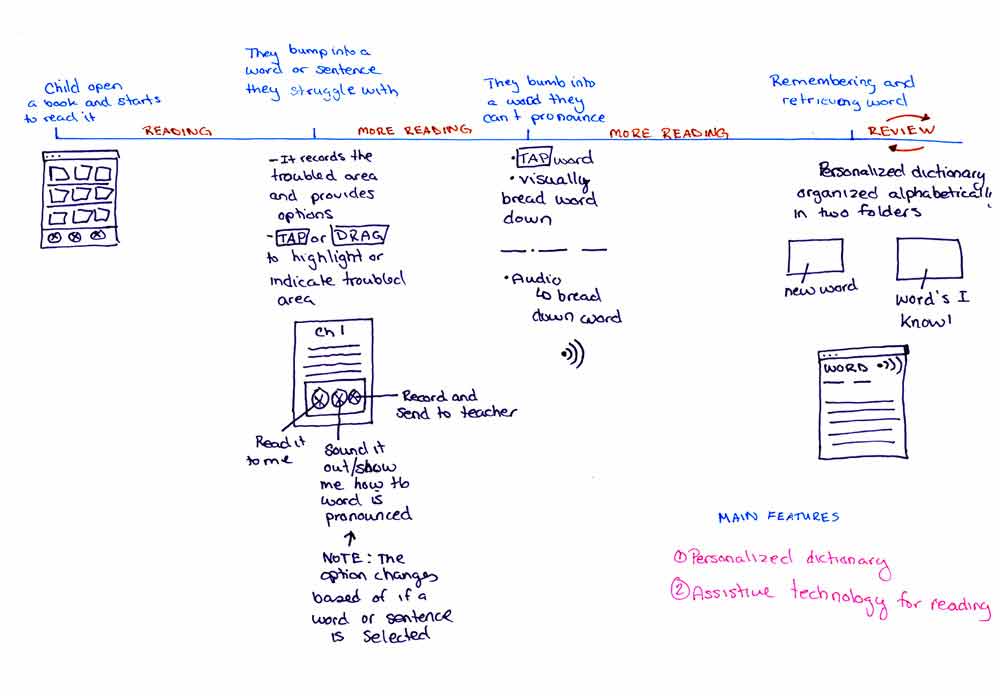 Child open
a book and starts
to read it
They bump into a
word or sentence
they struggle with
They bumb into
a word they
can't pronounce
Remembering and
retrieving word
READING
MORE READING
MORE READING
REVIEW
- It records the
troubled area
and provides
options
- TAP or DRAG
to highlight or
indicate troubled
area
Ch 1
Record and
Send to teacher
Read it
to me
Sound it
out/show
me how tb
word is
pronounced
NOTE: The
option changes
based of if a
word or sentence
is selected
• TAP word
• visually
bread word
down
• Audio
↳ bread
down word
Personalized dictionary
organized alphabetically
in two folders
new word
word's I
know!
WORD
MAIN FEATURES
① Personalized dictionary
② Assistive technology for reading